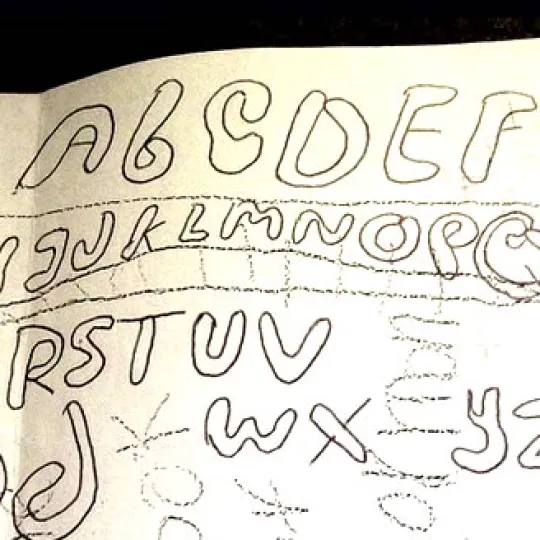 A b C D E F
J K L M N O P Q
R S T U V
W X y Z